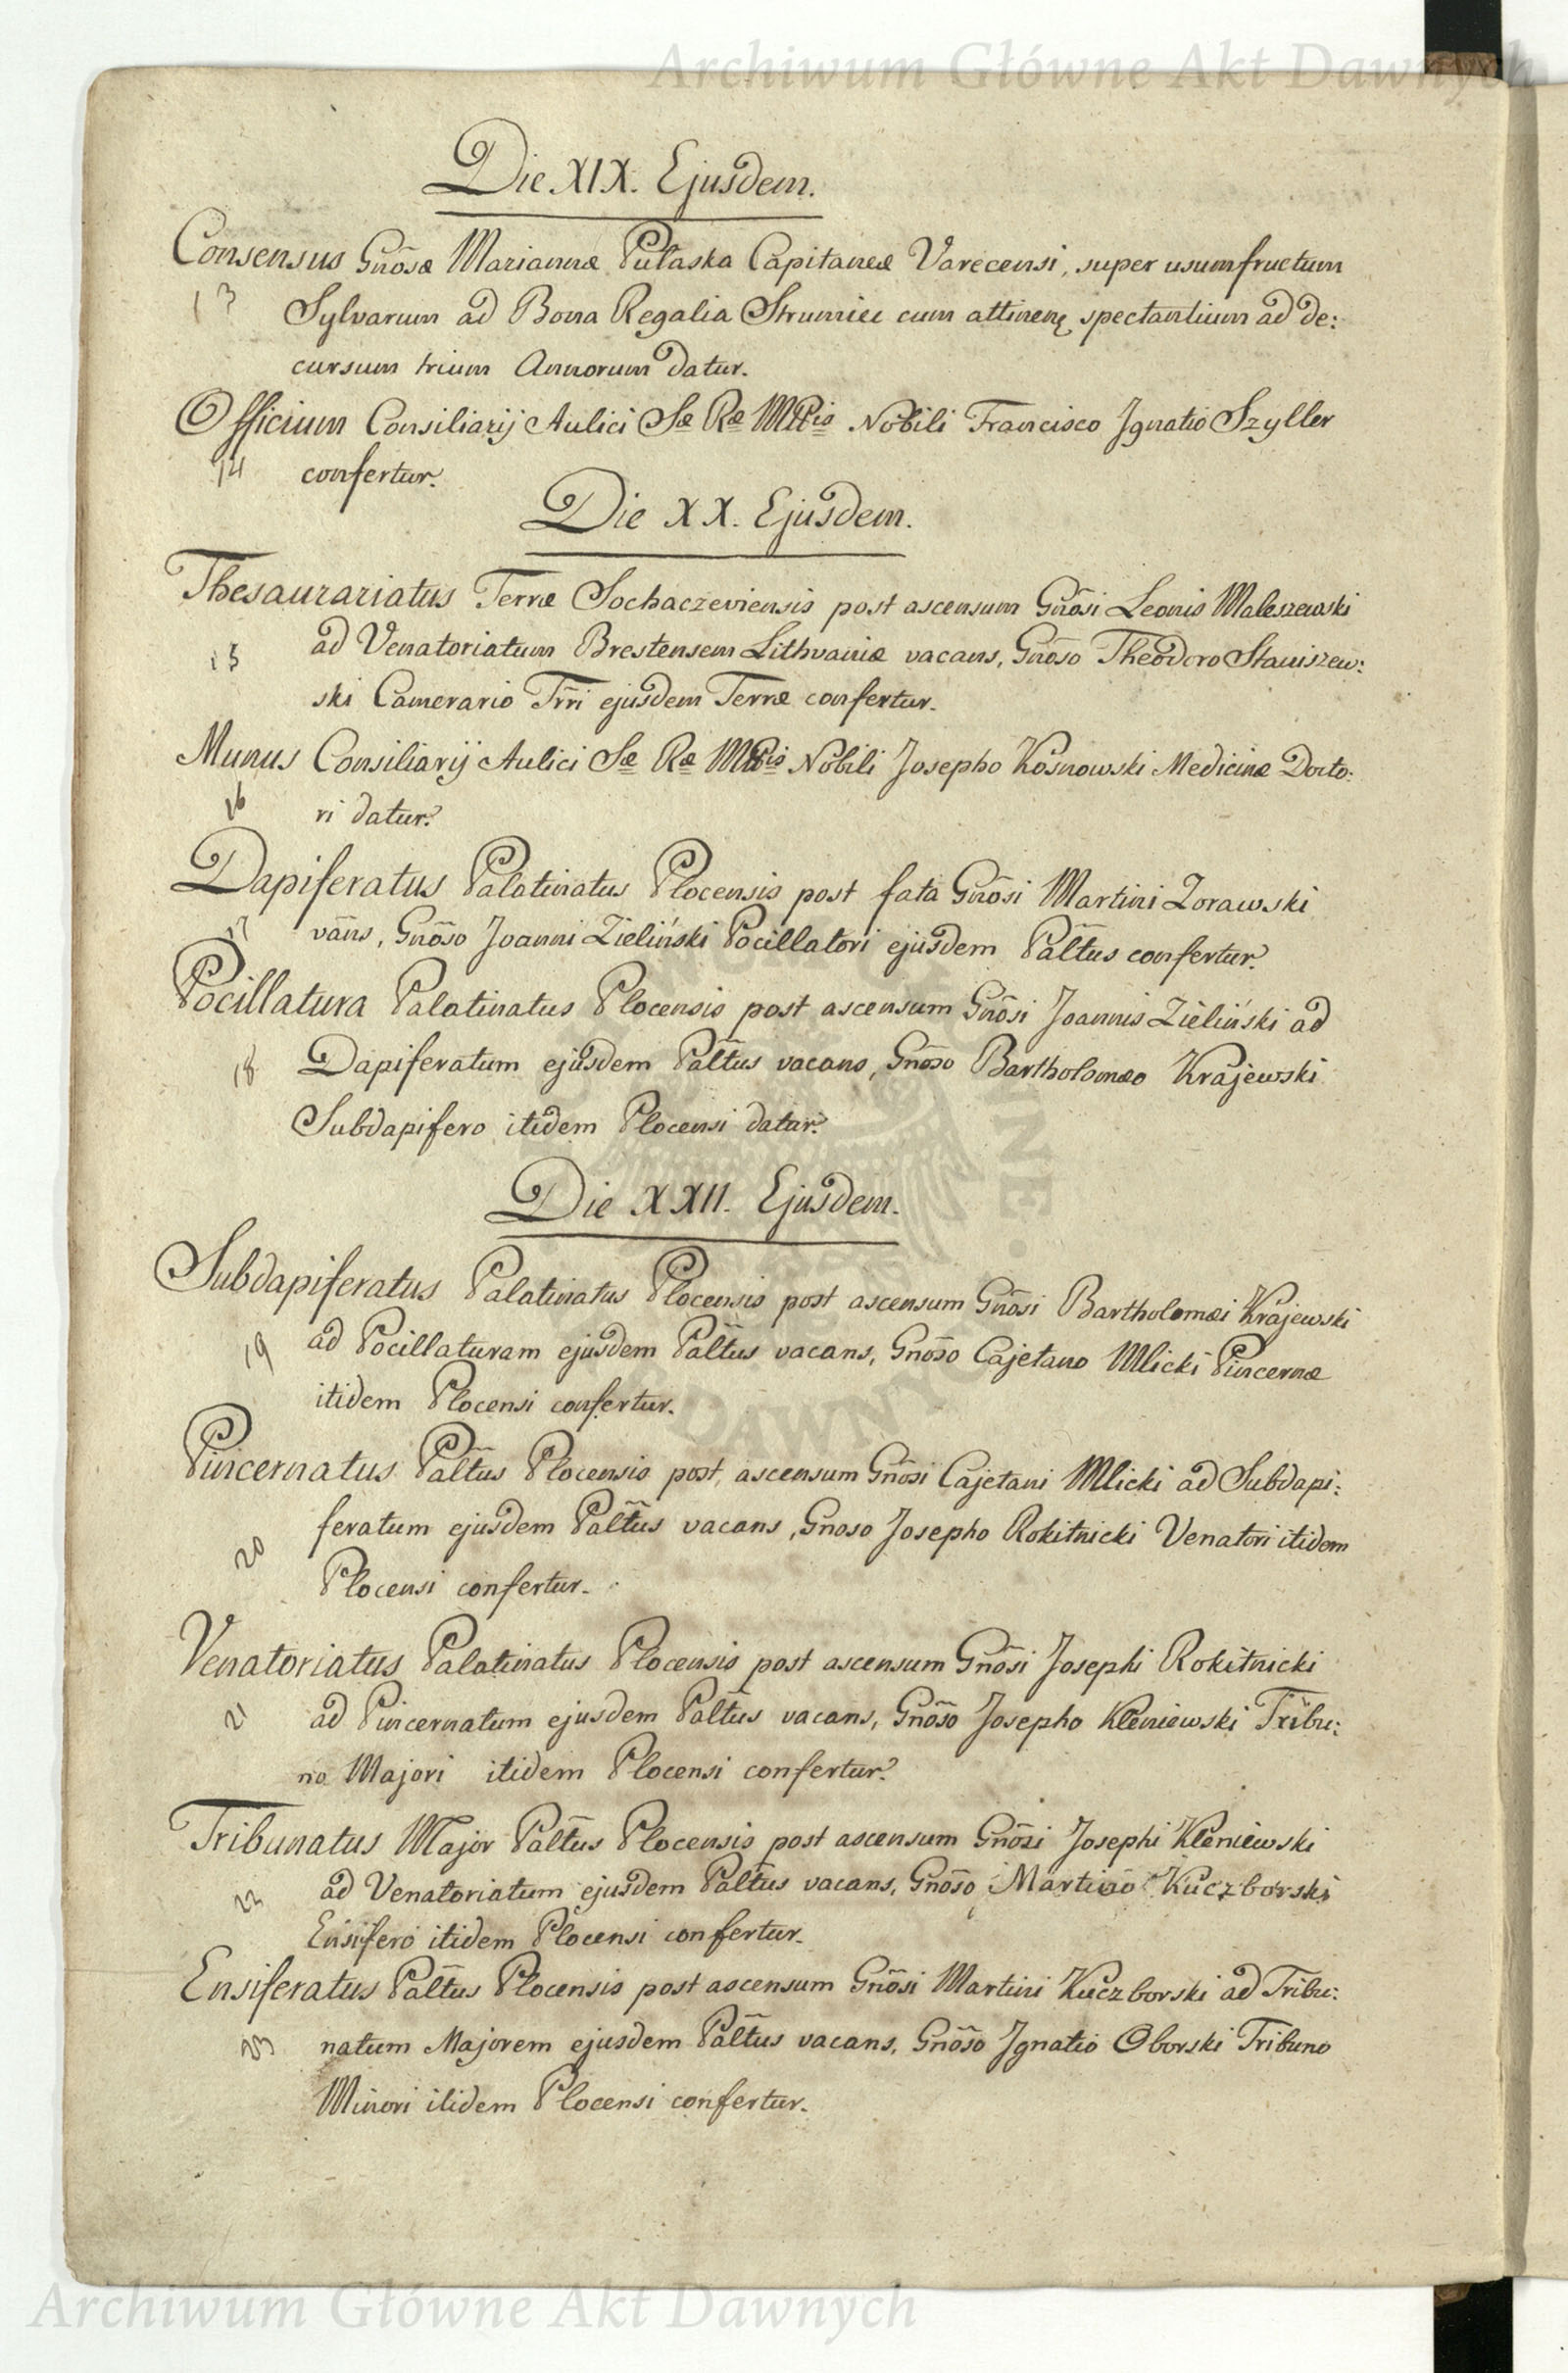 Archiwum Główne Akt Dawnych
Die XIX. Ejusdem.
Consensus Gnõsæ Mariannæ Pułaska Capitaneæ Varecensi, super usumfructum
13 Sylvarum ad Bona Regalia Strumiec cum attinenę spectantium ad de:
cursum trium Annorum datur.
Officium Consiliarij Aulici Sæ Ræ Mttis Nobili Francisco Ignatio Szyller
14 confertur.
Die XX. Ejusdem.
Thesaurariatus Terræ Sochaczeviensis post ascensum Gnõsi Leonis Maleszewski
15 ad Venatoriatum Brestensem Lithvaniæ vacans, Gnõso Theodoro Staniszew:
ski Camerario Trri ejusdem Terræ confertur.
Munus Consiliarij Aulici Sæ Ræ Mttis Nobili Josepho Kosnowski Medicinæ Docto:
16 ri datur.
Dapiferatus Palatinatus Plocensis post fata Gnõsi Martini Zorawski
17 vãns, Gnõso Joanni Zieliński Pocillatori ejusdem Paltũs confertur.
Pocillatura Palatinatus Plocensis post ascensum Gnõsi Joannis Zieliński ad
18 Dapiferatum ejusdem Paltũs vacans, Gnõso Bartholomæo Krajewski
Subdapifero itidem Plocensi datur.
Die XXII. Ejusdem.
Subdapiferatus Palatinatus Plocensis post ascensum Gnõsi Bartholomæi Krajewski
19 ad Pocillaturam ejusdem Paltũs vacans, Gnõso Cajetano Mlicki Pincernæ
itidem Plocensi confertur.
Pincernatus Paltũs Plocensis post ascensum Gnõsi Cajetani Mlicki ad Subdapi:
20 feratum ejusdem Paltũs vacans, Gnoso Josepho Rokitnicki Venatori itidem
Plocensi confertur.
Venatoriatus Palatinatus Plocensis post ascensum Gnõsi Josephi Rokitnicki
21 ad Pincernatum ejusdem Paltũs vacans, Gnõso Josepho Kleniewski Tribu:
no Majori itidem Plocensi confertur.
Tribunatus Major Paltũs Plocensis post ascensum Gnõsi Josephi Kleniewski
22 ad Venatoriatum ejusdem Paltũs vacans, Gnõso Martino Kuczborski
Ensifero itidem Plocensi confertur.
Ensiferatus Paltũs Plocensis post ascensum Gnõsi Martini Kuczborski ad Tribu:
23 natum Majorem ejusdem Paltũs vacans, Gnõso Ignatio Oborski Tribuno
Minori itidem Plocensi confertur.
Archiwum Główne Akt Dawnych